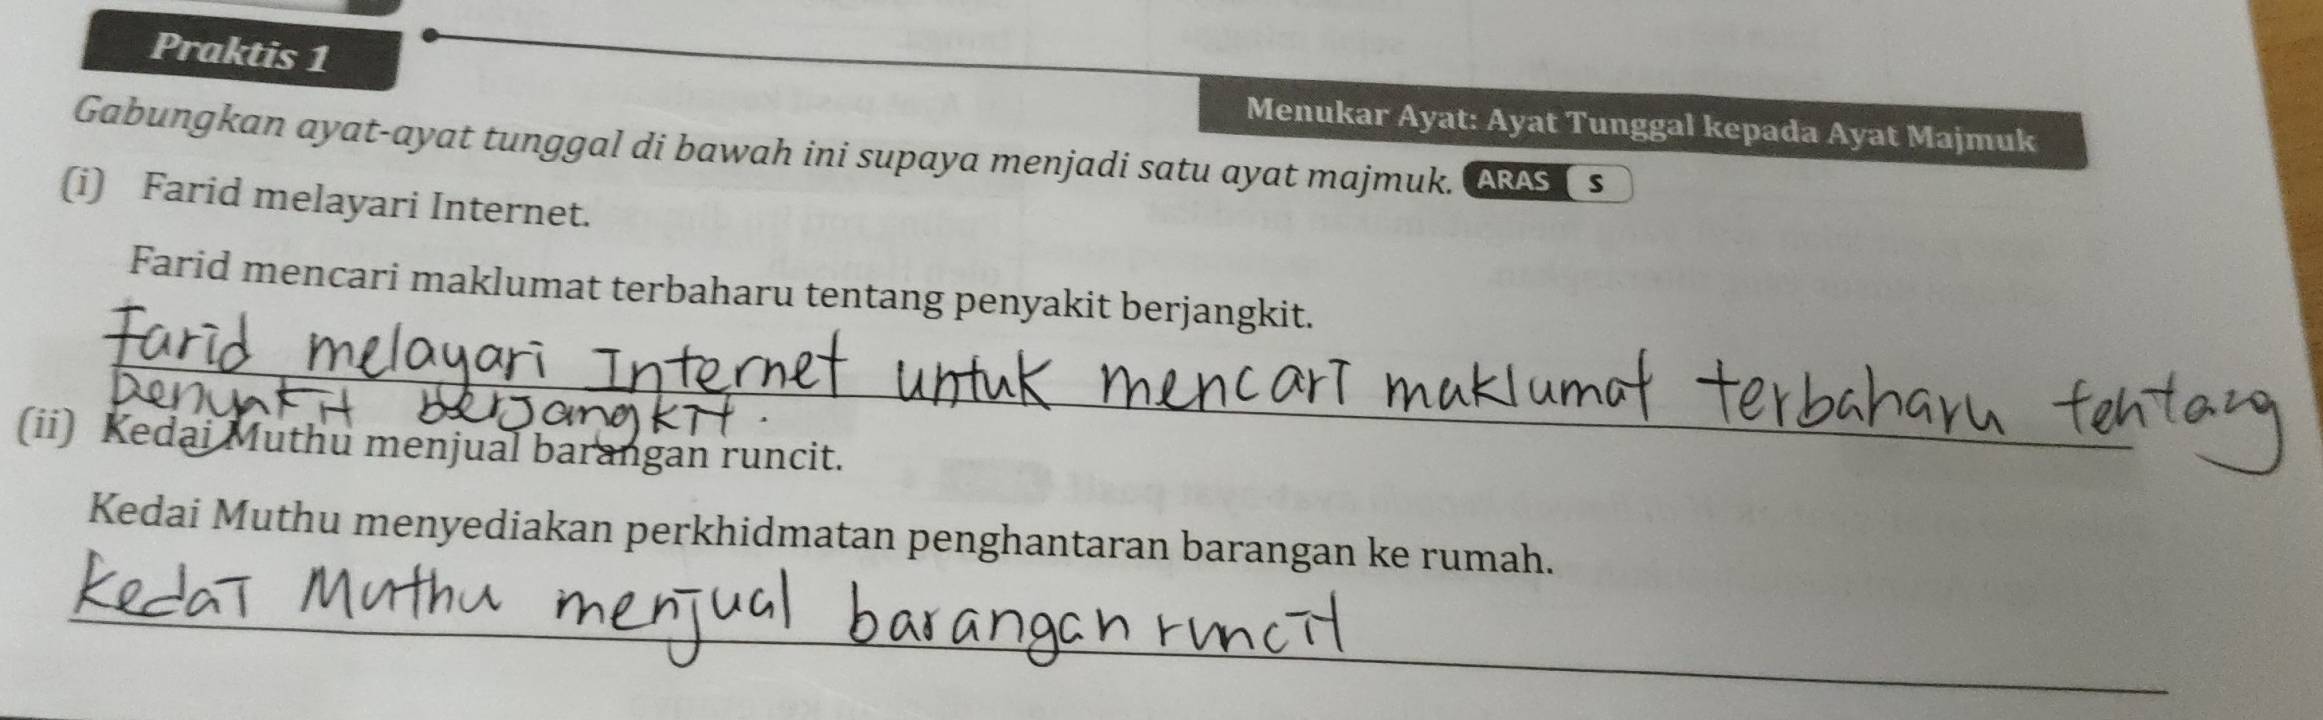 Praktis 1
Menukar Ayat: Ayat Tunggal kepada Ayat Majmuk
Gabungkan ayat-ayat tunggal di bawah ini supaya menjadi satu ayat majmuk. ARAS S
(i) Farid melayari Internet.
Farid mencari maklumat terbaharu tentang penyakit berjangkit.
Farid melayari Internet untuk mencari maklumat terbaharu tentang
penyakit berjangkit.
(ii) Kedai Muthu menjual barangan runcit.
Kedai Muthu menyediakan perkhidmatan penghantaran barangan ke rumah.
Kedai Muthu menjual barangan runcit